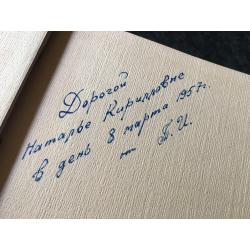 Дорогой
Наталье Кирилловне
в день 8 марта 1957г.
от Т. И.